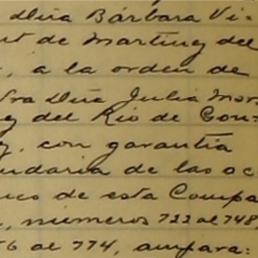 Dña Bárbara Vi-
de Martinez del
, a la orden de
tra Dña Julia Mor
y del Rio de Gon-
, con garantía
undaria de las ac
de esta Compa
, números 722 al 748,
56 al 774, ampara: